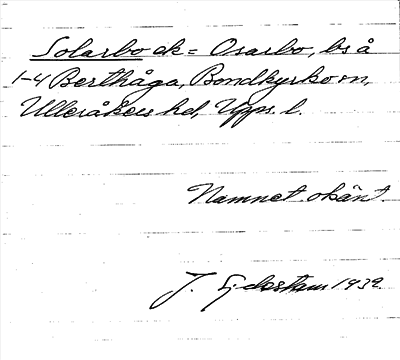 Solarbo ck = Osarbo, bs å
1-4 Berthåga, Bondkyrko sn,
Ulleråkers hd, Upps. l.
Namnet okänt.
J. Ejdestam 1939